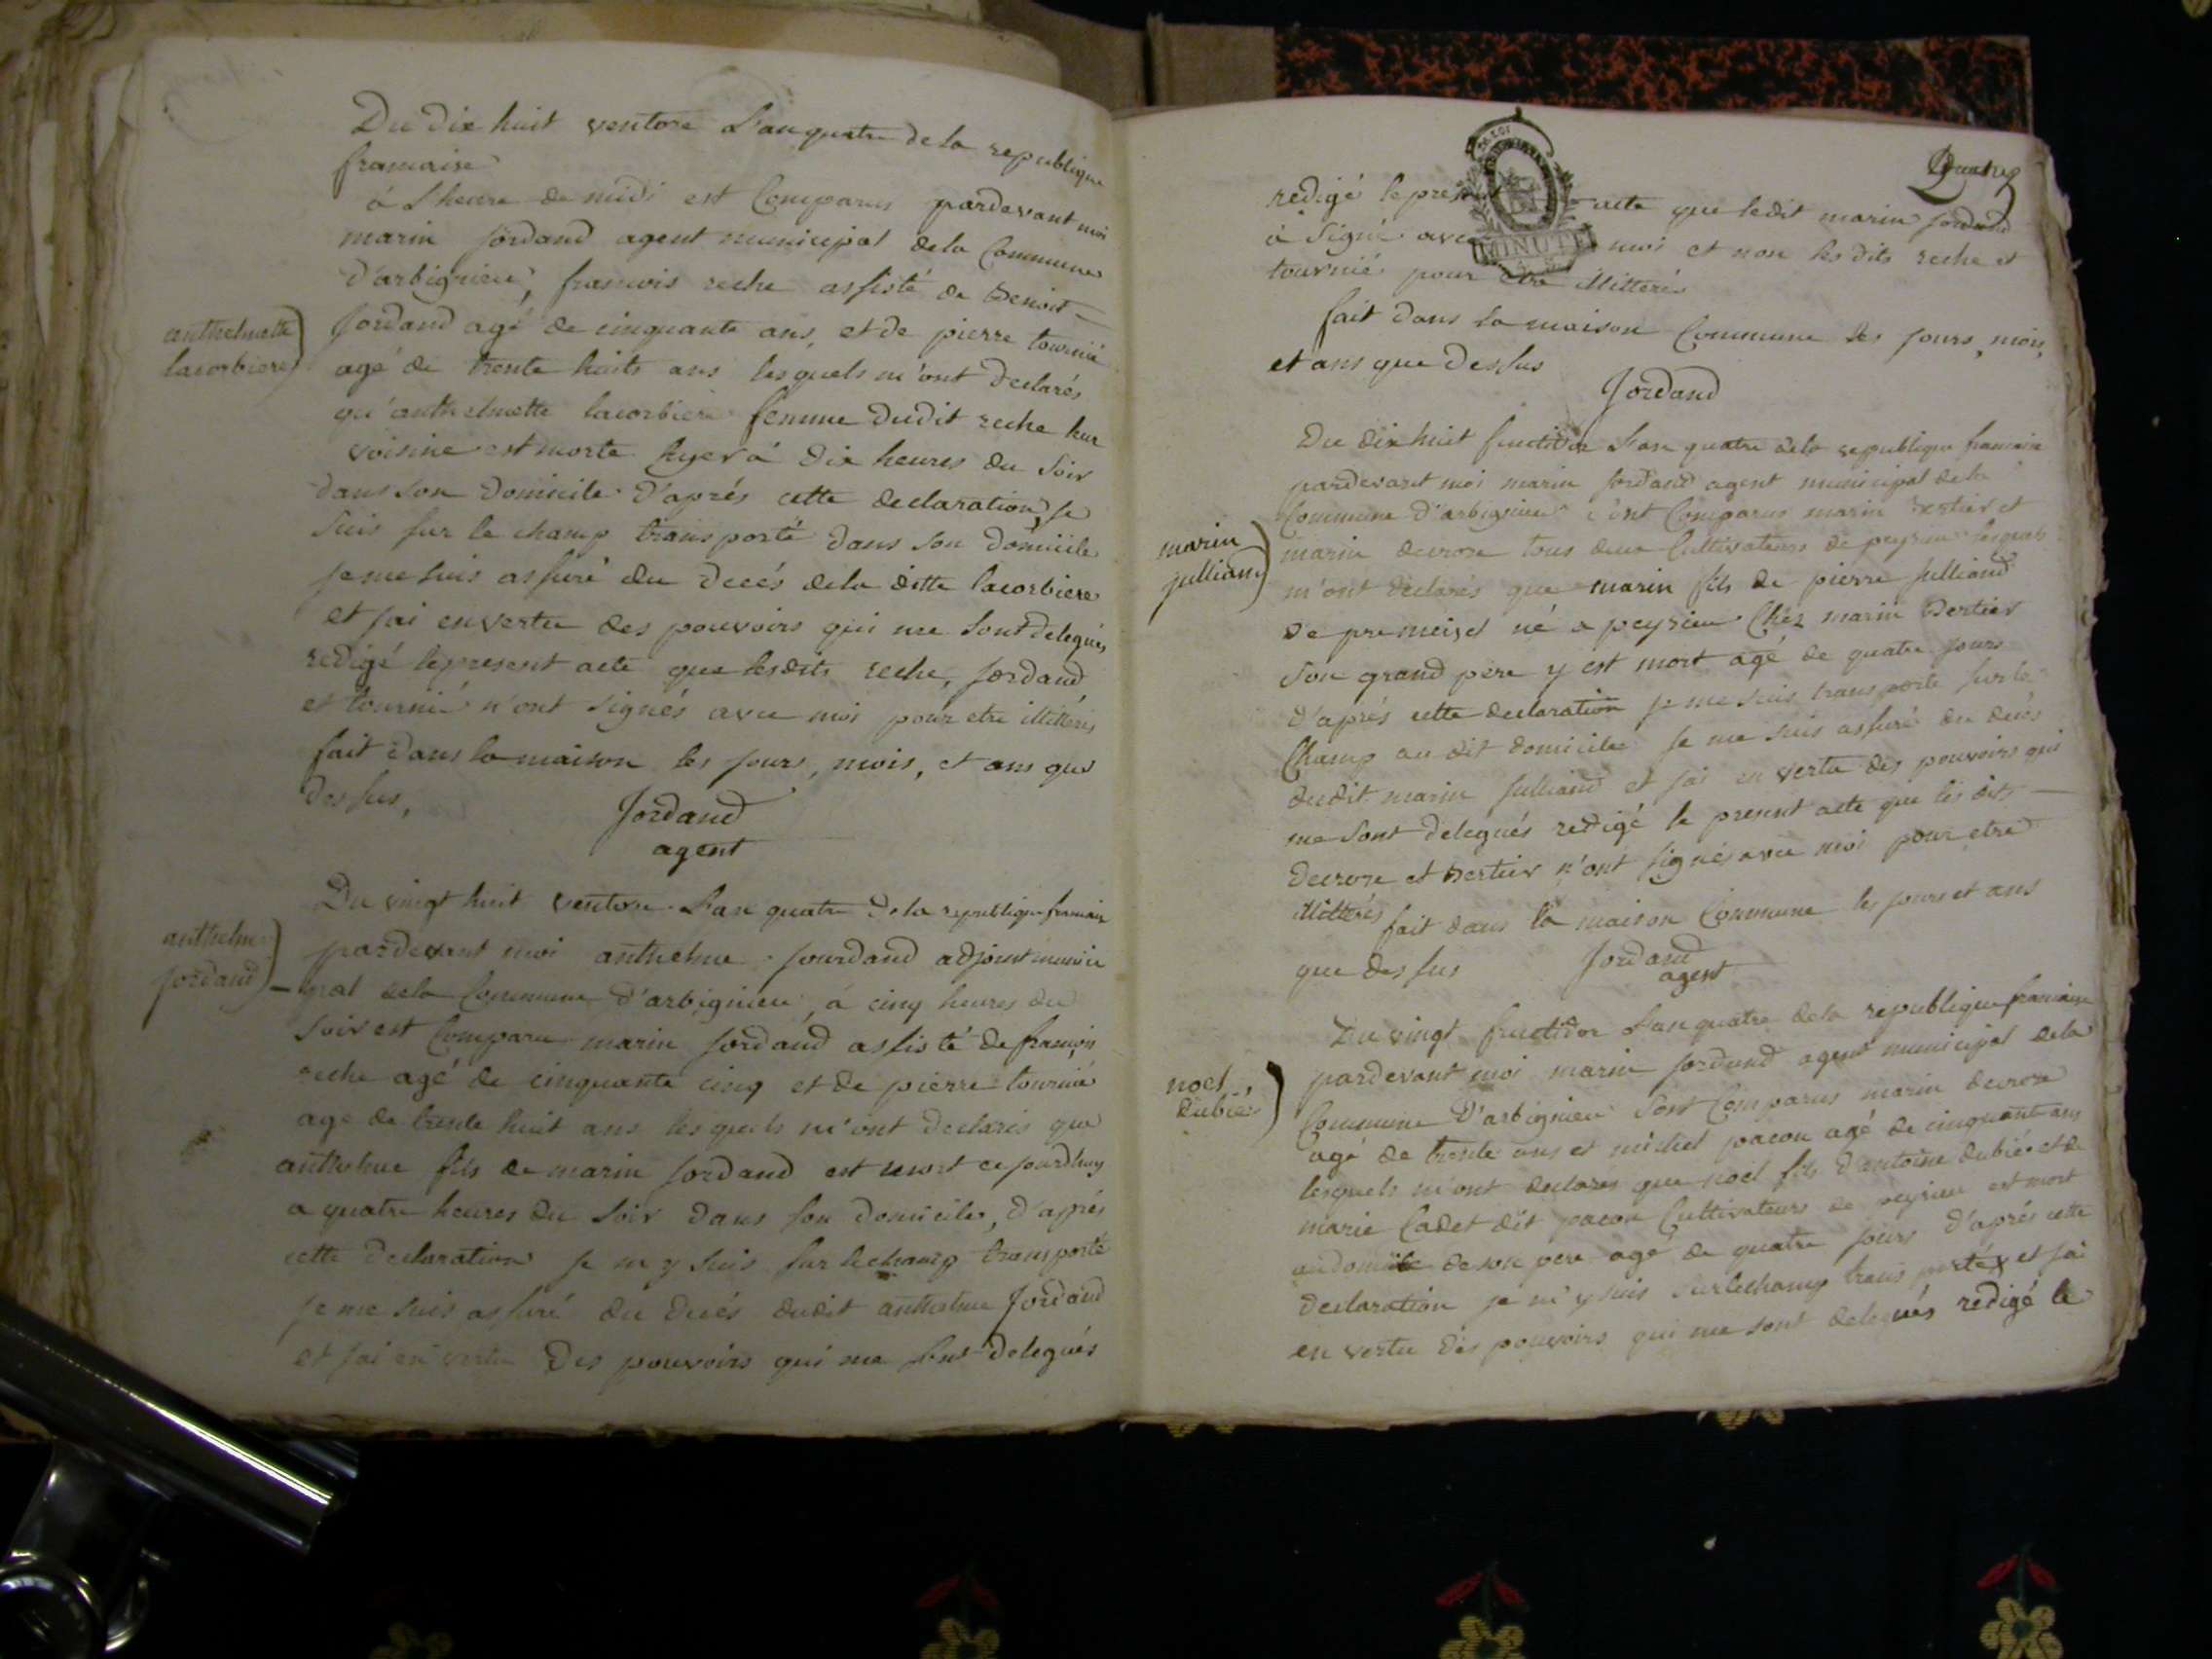 Du dix huit ventose L'an quatre de la republique
francaise
á L'heure de midi est Comparus pardevant moi
marin jordand agent municipal dela Commune
d'arbignieu, francois reche assisté de Benoit
anthelmette
lacorbiere
Jordand agé de cinquante ans, et de pierre tournié
agé de trente huits ans lesquels m'ont declarés
qu'anthelmette lacorbiere femme dudit reche leur
voisine est morte hyer á dix heures du soir
dans son domicile d'aprés cette declaration, je
suis sur le champ transporté dans son domicile
je me suis assuré du decés dela ditte lacorbiere
et jai en vertu des pouvoirs qui me sont delegués
redigé le present acte que lesdits reche, jordand
et tournié n'ont signés avec moi pour etre illitterés
fait dans la maison les jours, mois, et ans que
dessus,
Jordand
agent
Du vingt huit ventose L'an quatre dela republique francaise
anthelme
jordand
pardevant moi anthelme jourdand adjoint munici
pal dela Commune d'arbignieu, á cinq heures du
soir est Comparu marin jordand assisté de francois
reche agé de cinquante cinq et de pierre tournié
age de trente huit ans lesquels m'ont declarés que
anthelme fils de marin jordand est mort ce jourdhuy
a quatre heures du soir dans son domicile, d'aprés
cette declaration je m'y suis sur lechamp transporté
je me suis assuré du decés dudit anthelme Jordand
et jai en vertu des pouvoirs qui me sont delegués
Quatre
redigé le pres acte que ledit marin jordand
á signé avec moi et non les dits reche et
MINUTE
tournié pour etre illitterés
fait dans la maison Commune les jours, mois,
et ans que dessus
Jordand
Du dix huit fructidor L'an quatre dela republique francaise
pardevant moi marin jordand agent municipal dela
Commune d'arbignieu sont Comparus marin Bertier et
marin
julliand
marin decroze tous deux Cultivateurs de peyrieu lesquels
m'ont declarés que marin fils de pierre julliand
de premeisel né a peyrieu Chéz marin Bertier
son grand pere y est mort agé de quatre jours
d'aprés cette declaration je me suis transporte sur le
Champ au dit domicile je me suis assuré du decés
dudit marin julliand et jai en vertu des pouvoirs qui
me sont delegués redigé le present acte que les dits
decroze et Bertier n'ont signés avec moi pour etre
illitterés fait dans la maison Commune les jours et ans
que dessus
Jordand
agent
Du vingt fructidor L'an quatre dela republique francaise
noel
dubié
pardevant moi marin jordand agent municipal dela
Commune D'arbignieu sont Comparus marin decroze
agé de trente ans et michel pacon agé de cinquante ans
lesquels m'ont declarés que noel fils d'antoine dubié et de
marie Cadet dit pacon Cultivateurs de peyrieu est mort
au domicile de son pere age de quatre jours d'aprés cette
declaration je m'y suis surlechamp transporté et jai
en vertu des pouvoirs qui me sont delegués redigé le